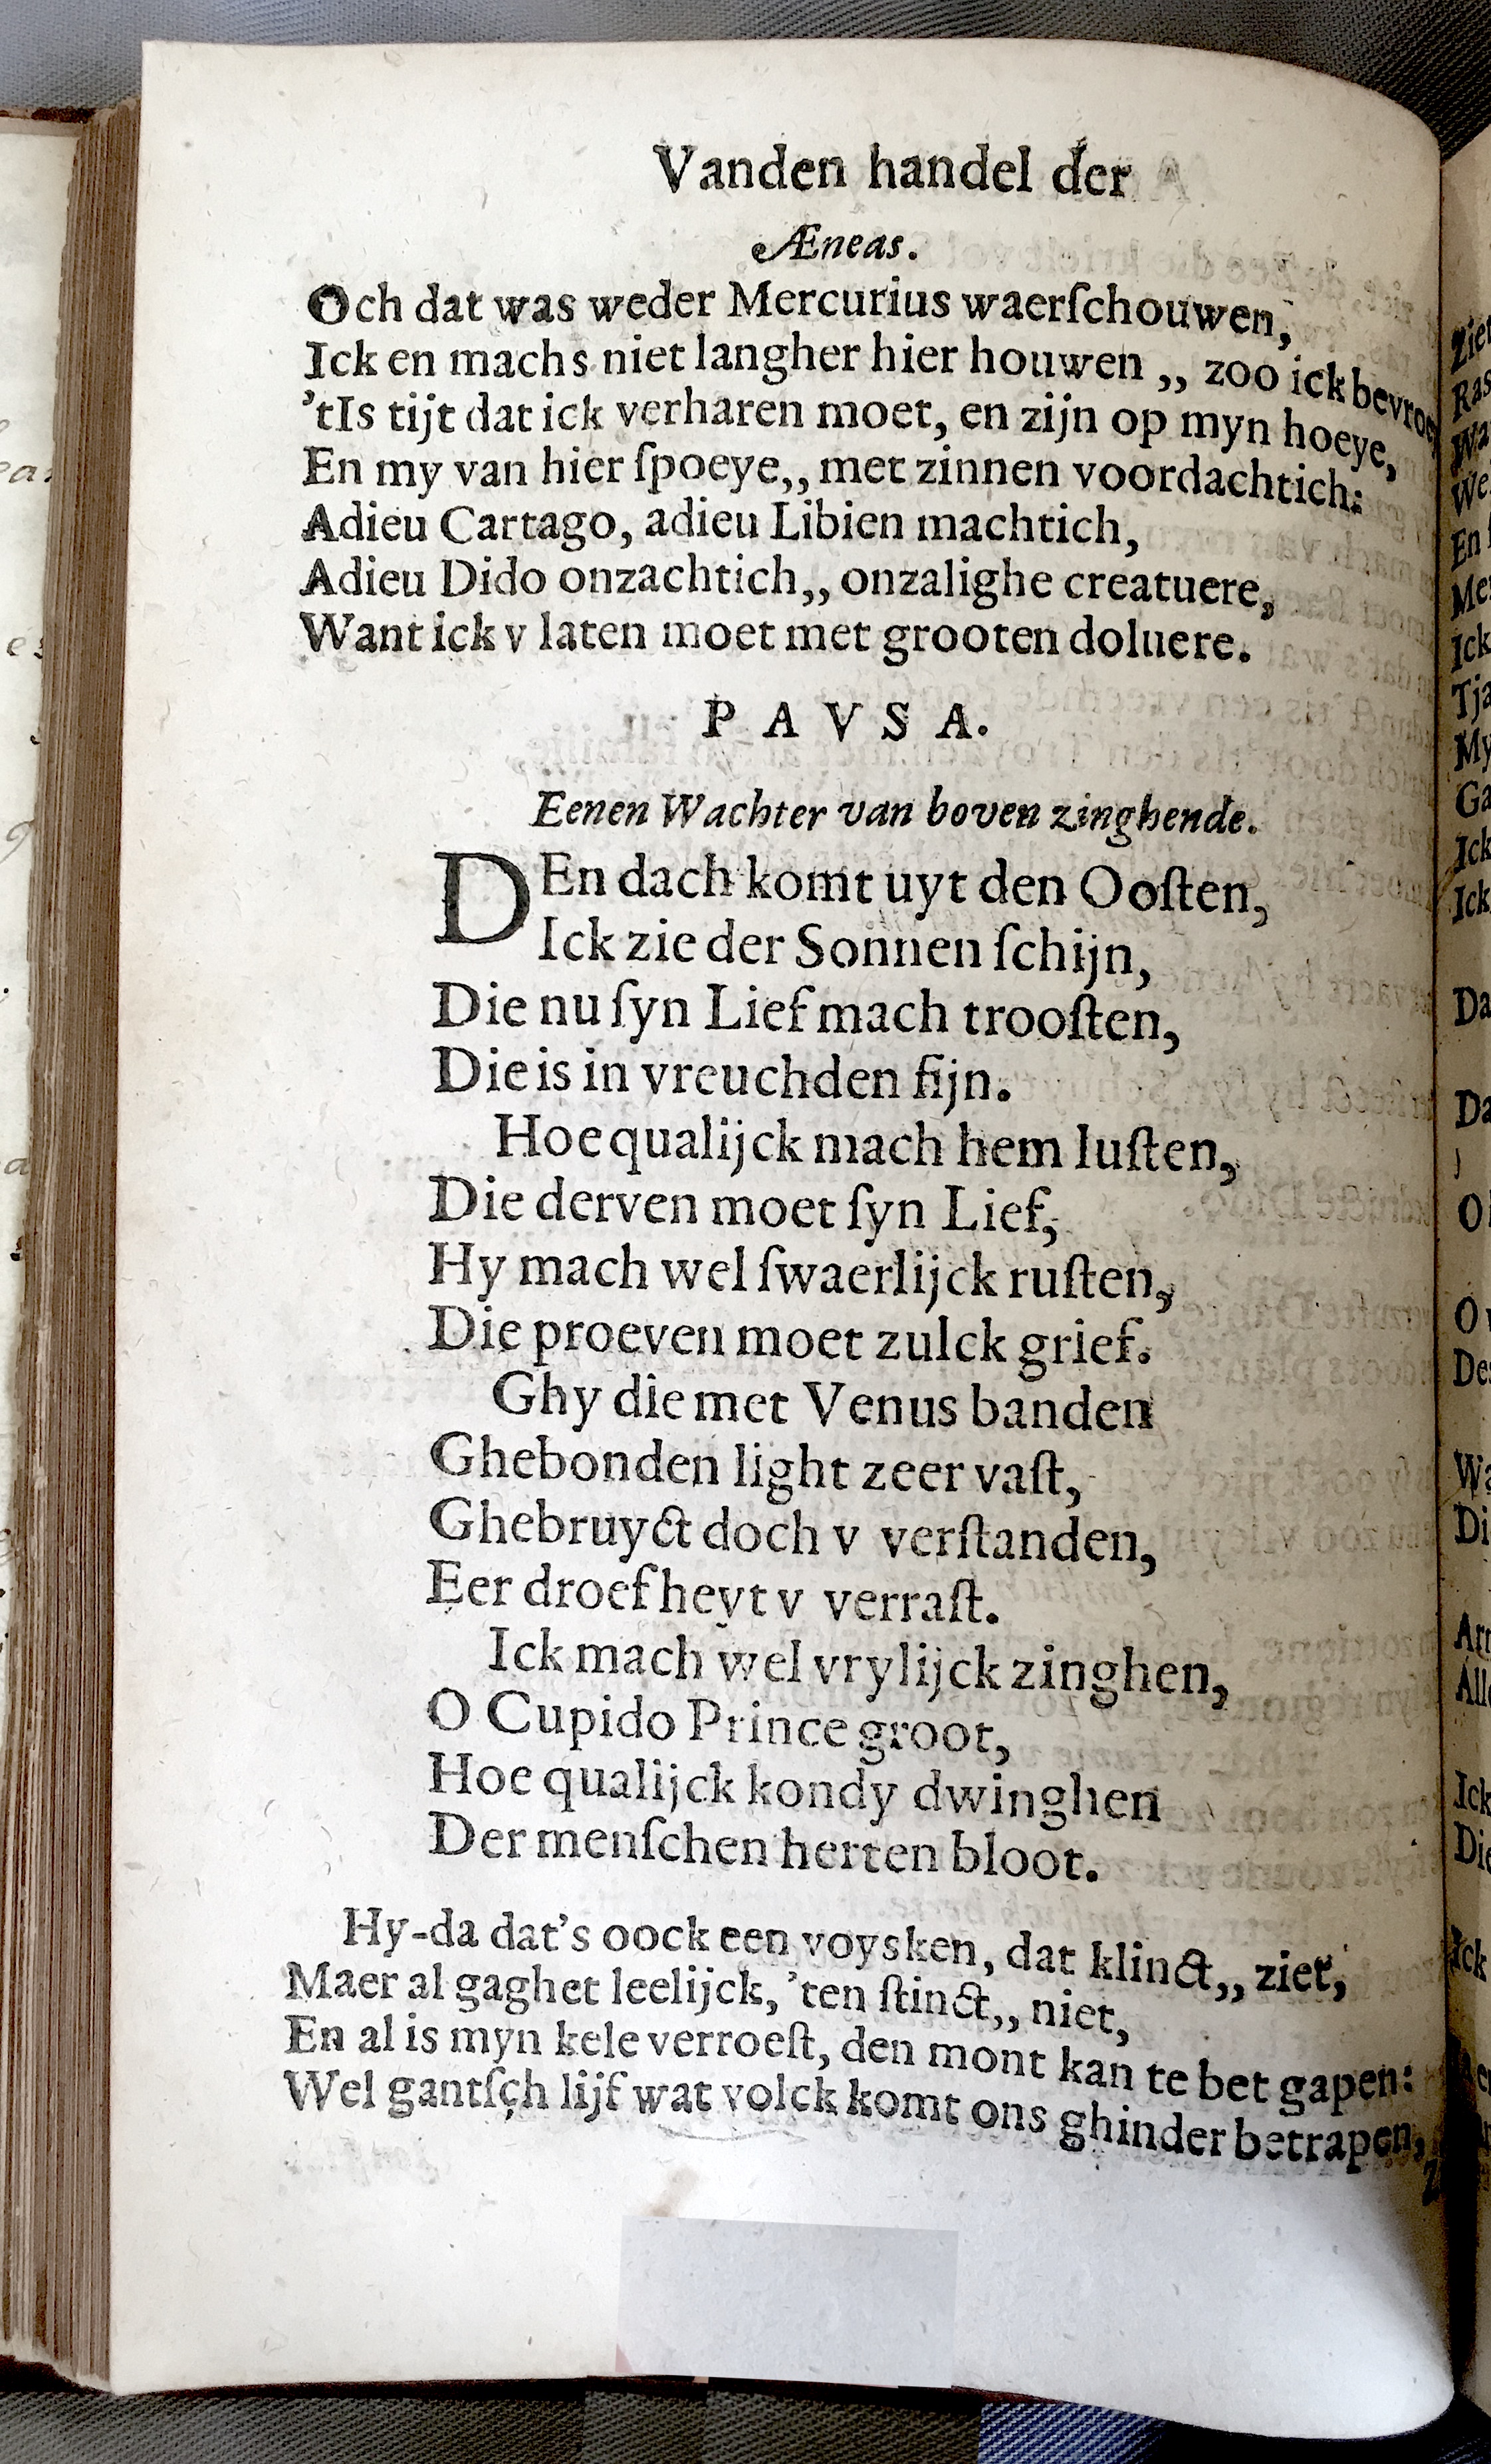 Vanden handel der
Æneas.
Och dat was weder Mercurius waerſchouwen,
Ick en machs niet langher hier houwen ,, zoo ick
'tIs tijt dat ick verharen moet, en zijn op myn hoeye,
En my van hier ſpoeye,, met zinnen voordachtich:
Adieu Cartago, adieu Libien machtich,
Adieu Dido onzachtich,, onzalighe creatuere,
Want ick v laten moet met grooten doluere.
P A V S A.
Eenen Wachter van boven zinghende.
DEn dach komt uyt den Ooſten,
Ick zie der Sonnen ſchijn,
Die nu ſyn Lief mach trooſten,
Die is in vreuchden fijn.
Hoe qualijck mach hem luſten,
Die derven moet ſyn Lief,
Hy mach wel ſwaerlijck ruſten,
Die proeven moet zulck grief.
Ghy die met Venus banden
Ghebonden light zeer vaſt,
Ghebruyct doch v verſtanden,
Eer droefheyt v verraſt.
Ick mach wel vrylijck zinghen,
O Cupido Prince groot,
Hoe qualijck kondy dwinghen
Der menſchen herten bloot.
Hy-da dat's oock een voysken, dat klinct,, ziet,
Maer al gaghet leelijck, 'ten ſtinct,, niet,
En al is myn kele verroeſt, den mont kan te bet gapen:
Wel gantſch lijf wat volck komt ons ghinder betrapen,